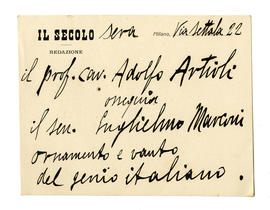 IL SECOLO sera
REDAZIONE
Milano, Via Settala 22
il prof. cav. Adolfo Artioli
omaggia
il sen. Guglielmo Marconi
ornamento e vanto
del genio italiano.